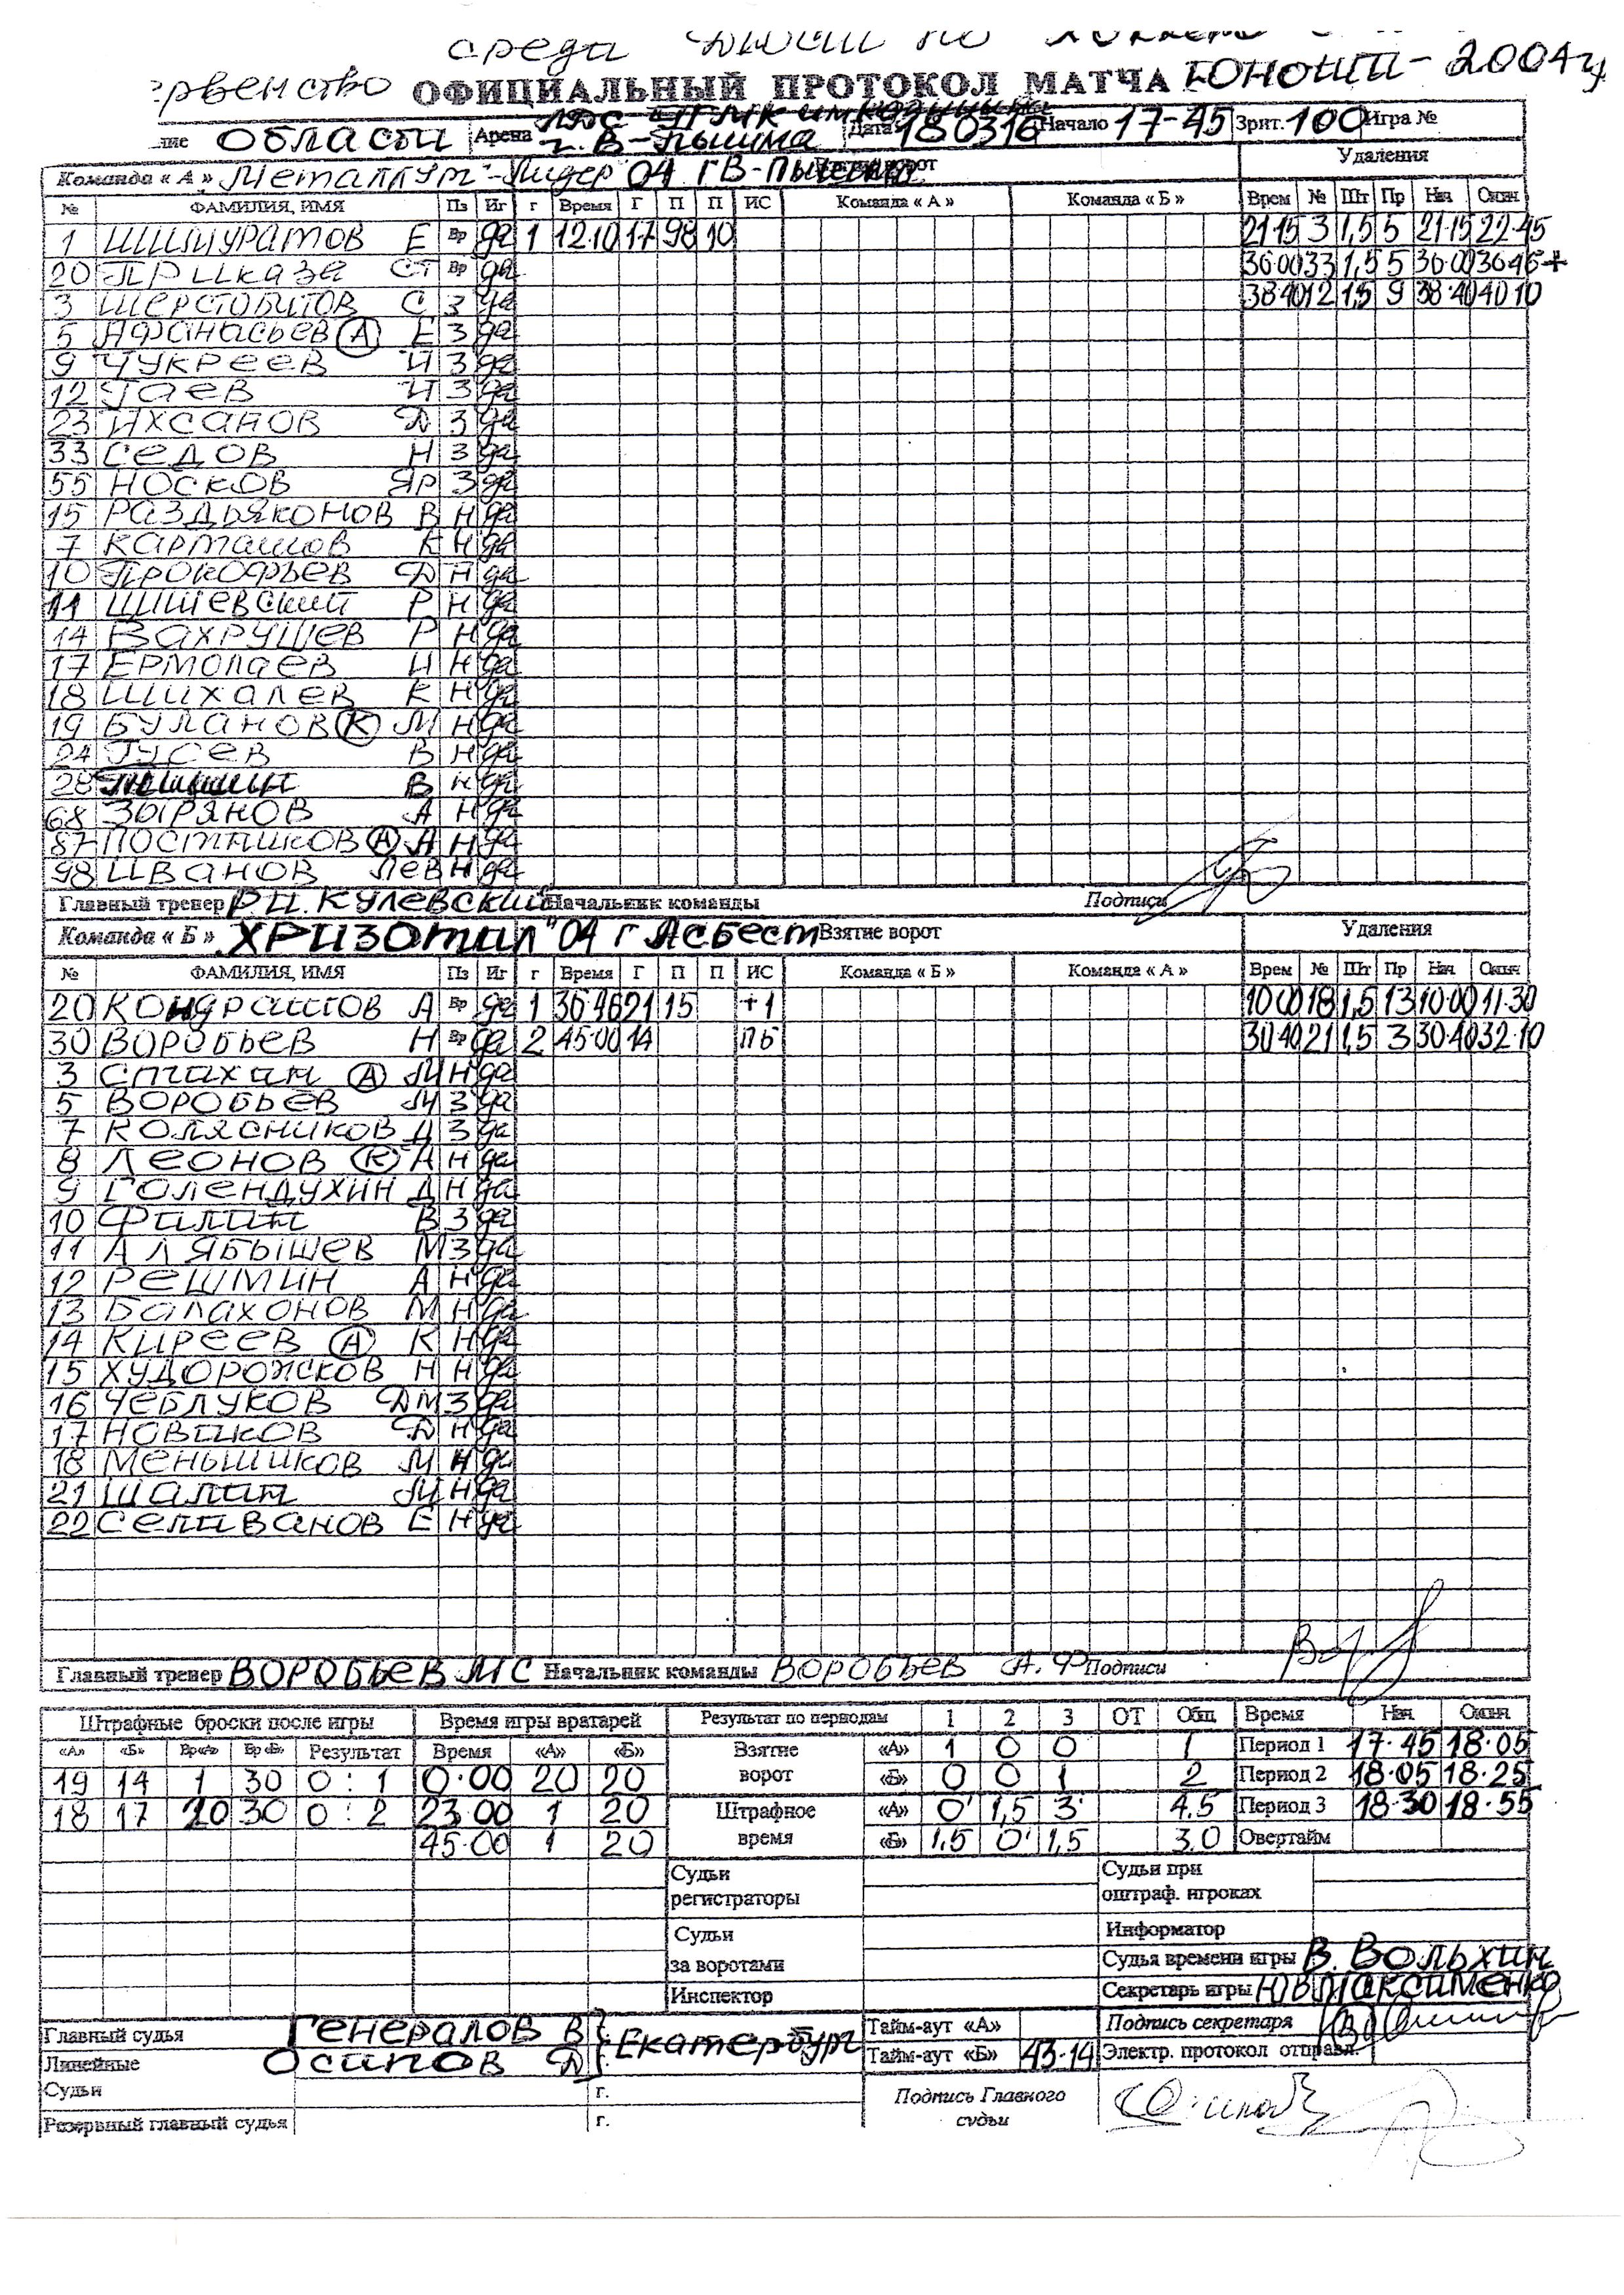 среди ДЮСШ по хоккею с
рвенство ОФИЦИАЛЬНЫЙ ПРОТОКОЛ МАТЧА ЮНОШИ - 2004г
ние Области Арена г. В-Пышма Дата 180316 Начало 17-45 Зрит. 100 Игра №
Команда « А » Металлург-Лидер 04 Г В-Пышма Взятие ворот Удаления
№ ФАМИЛИЯ, ИМЯ Пз Иг г Время Г П П ИС Команда « А » Команда « Б » Врем № Шт Пр Нач Оконч
1 ШИМУРАТОВ Е Вр да 1 12.10 17 98 10 21.15 3 1,5 5 21.15 22.45
20 Приказа Ст Вр да 36.00 33 1,5 5 36.00 36 46 +
3 ШЕРСТОБИТОВ С З да 38.40 12 1,5 9 38.40 40 10
5 Афанасьев (А) Е З да
9 ЧУКРЕЕВ И З да
12 Гаев И З да
23 ИХСАНОВ Д З да
33 СЕДОВ Н З да
55 НОСКОВ Яр З да
15 РАЗДЬЯКОНОВ В Н да
7 Карташов К Н да
10 Прокофьев Д Н да
11 Шишевский Р Н да
14 ВАХРУШЕВ Р Н да
17 ЕРМОЛАЕВ И Н да
18 ШИХАЛЕВ К Н да
19 БУЛАНОВ (К) М Н да
24 ГУСЕВ В Н да
28 В Н да
68 ЗЫРЯНОВ А Н да
87 ПОСТНИКОВ (А) А Н да
98 ИВАНОВ Лев Н да
Главный тренер Р И. КУЛЕВСКИЙ Начальник команды Подписи
Команда « Б » ХРИЗОТИЛ" 04 г АСБЕСТ Взятие ворот Удаления
№ ФАМИЛИЯ, ИМЯ Пз Иг г Время Г П П ИС Команда « Б » Команда « А » Врем № Шт Пр Нач Оконч
20 Кондрашов А Вр да 1 36 46 21 15 +1 10 00 18 1,5 13 10.00 11.30
30 ВОРОБЬЕВ Н Вр да 2 45.00 14 ПБ 30 40 21 1,5 3 30.40 32.10
3 Спахан (А) М Н да
5 ВОРОБЬЕВ М З да
7 КОЛЯСНИКОВ Д З да
8 ЛЕОНОВ (К) А Н да
9 ГОЛЕНДУХИН Д Н да
10 Филин В З да
11 АЛЯБЫШЕВ М З да
12 РЕШМИН А Н да
13 БАЛАХОНОВ М Н да
14 КИРЕЕВ (А) К Н да
15 ХУДОРОЖКОВ Н Н да
16 ЧЕБЛУКОВ ДМ З да
17 НОВИКОВ Д Н да
18 МЕНЬШИКОВ М Н да
21 Шалин М Н да
22 СЕЛИВАНОВ Е Н да
Главный тренер ВОРОБЬЕВ МС Начальник команды ВОРОБЬЕВ А. Ф Подписи
Штрафные броски после игры Время игры вратарей Результат по периодам 1 2 3 ОТ Общ Время Нач. Оконч.
«А» «Б» Вр«А» Вр«Б» Результат Время «А» «Б» Взятие ворот «А» 1 0 0 1 Период 1 17.45 18.05
19 14 1 30 0 : 1 0.00 20 20 «Б» 0 0 1 2 Период 2 18.05 18.25
18 17 20 30 0 : 2 23.00 1 20 Штрафное время «А» 0' 1,5 3' 4.5 Период 3 18.30 18.55
45.00 1 20 «Б» 1.5 0' 1,5 3.0 Овертайм
Судьи регистраторы Судьи при оштраф. игроках
Судьи за воротами Информатор
Судья времени игры В. Вольхин
Инспектор Секретарь игры Ю В Максименко
Главный судья Генералов В Екатербург Тайм-аут «А» Подпись секретаря
Линейные Осипов Д Тайм-аут «Б» 43.14 Электр. протокол отправл.
Судьи г. Подпись Главного судьи
Резервный главный судья г.